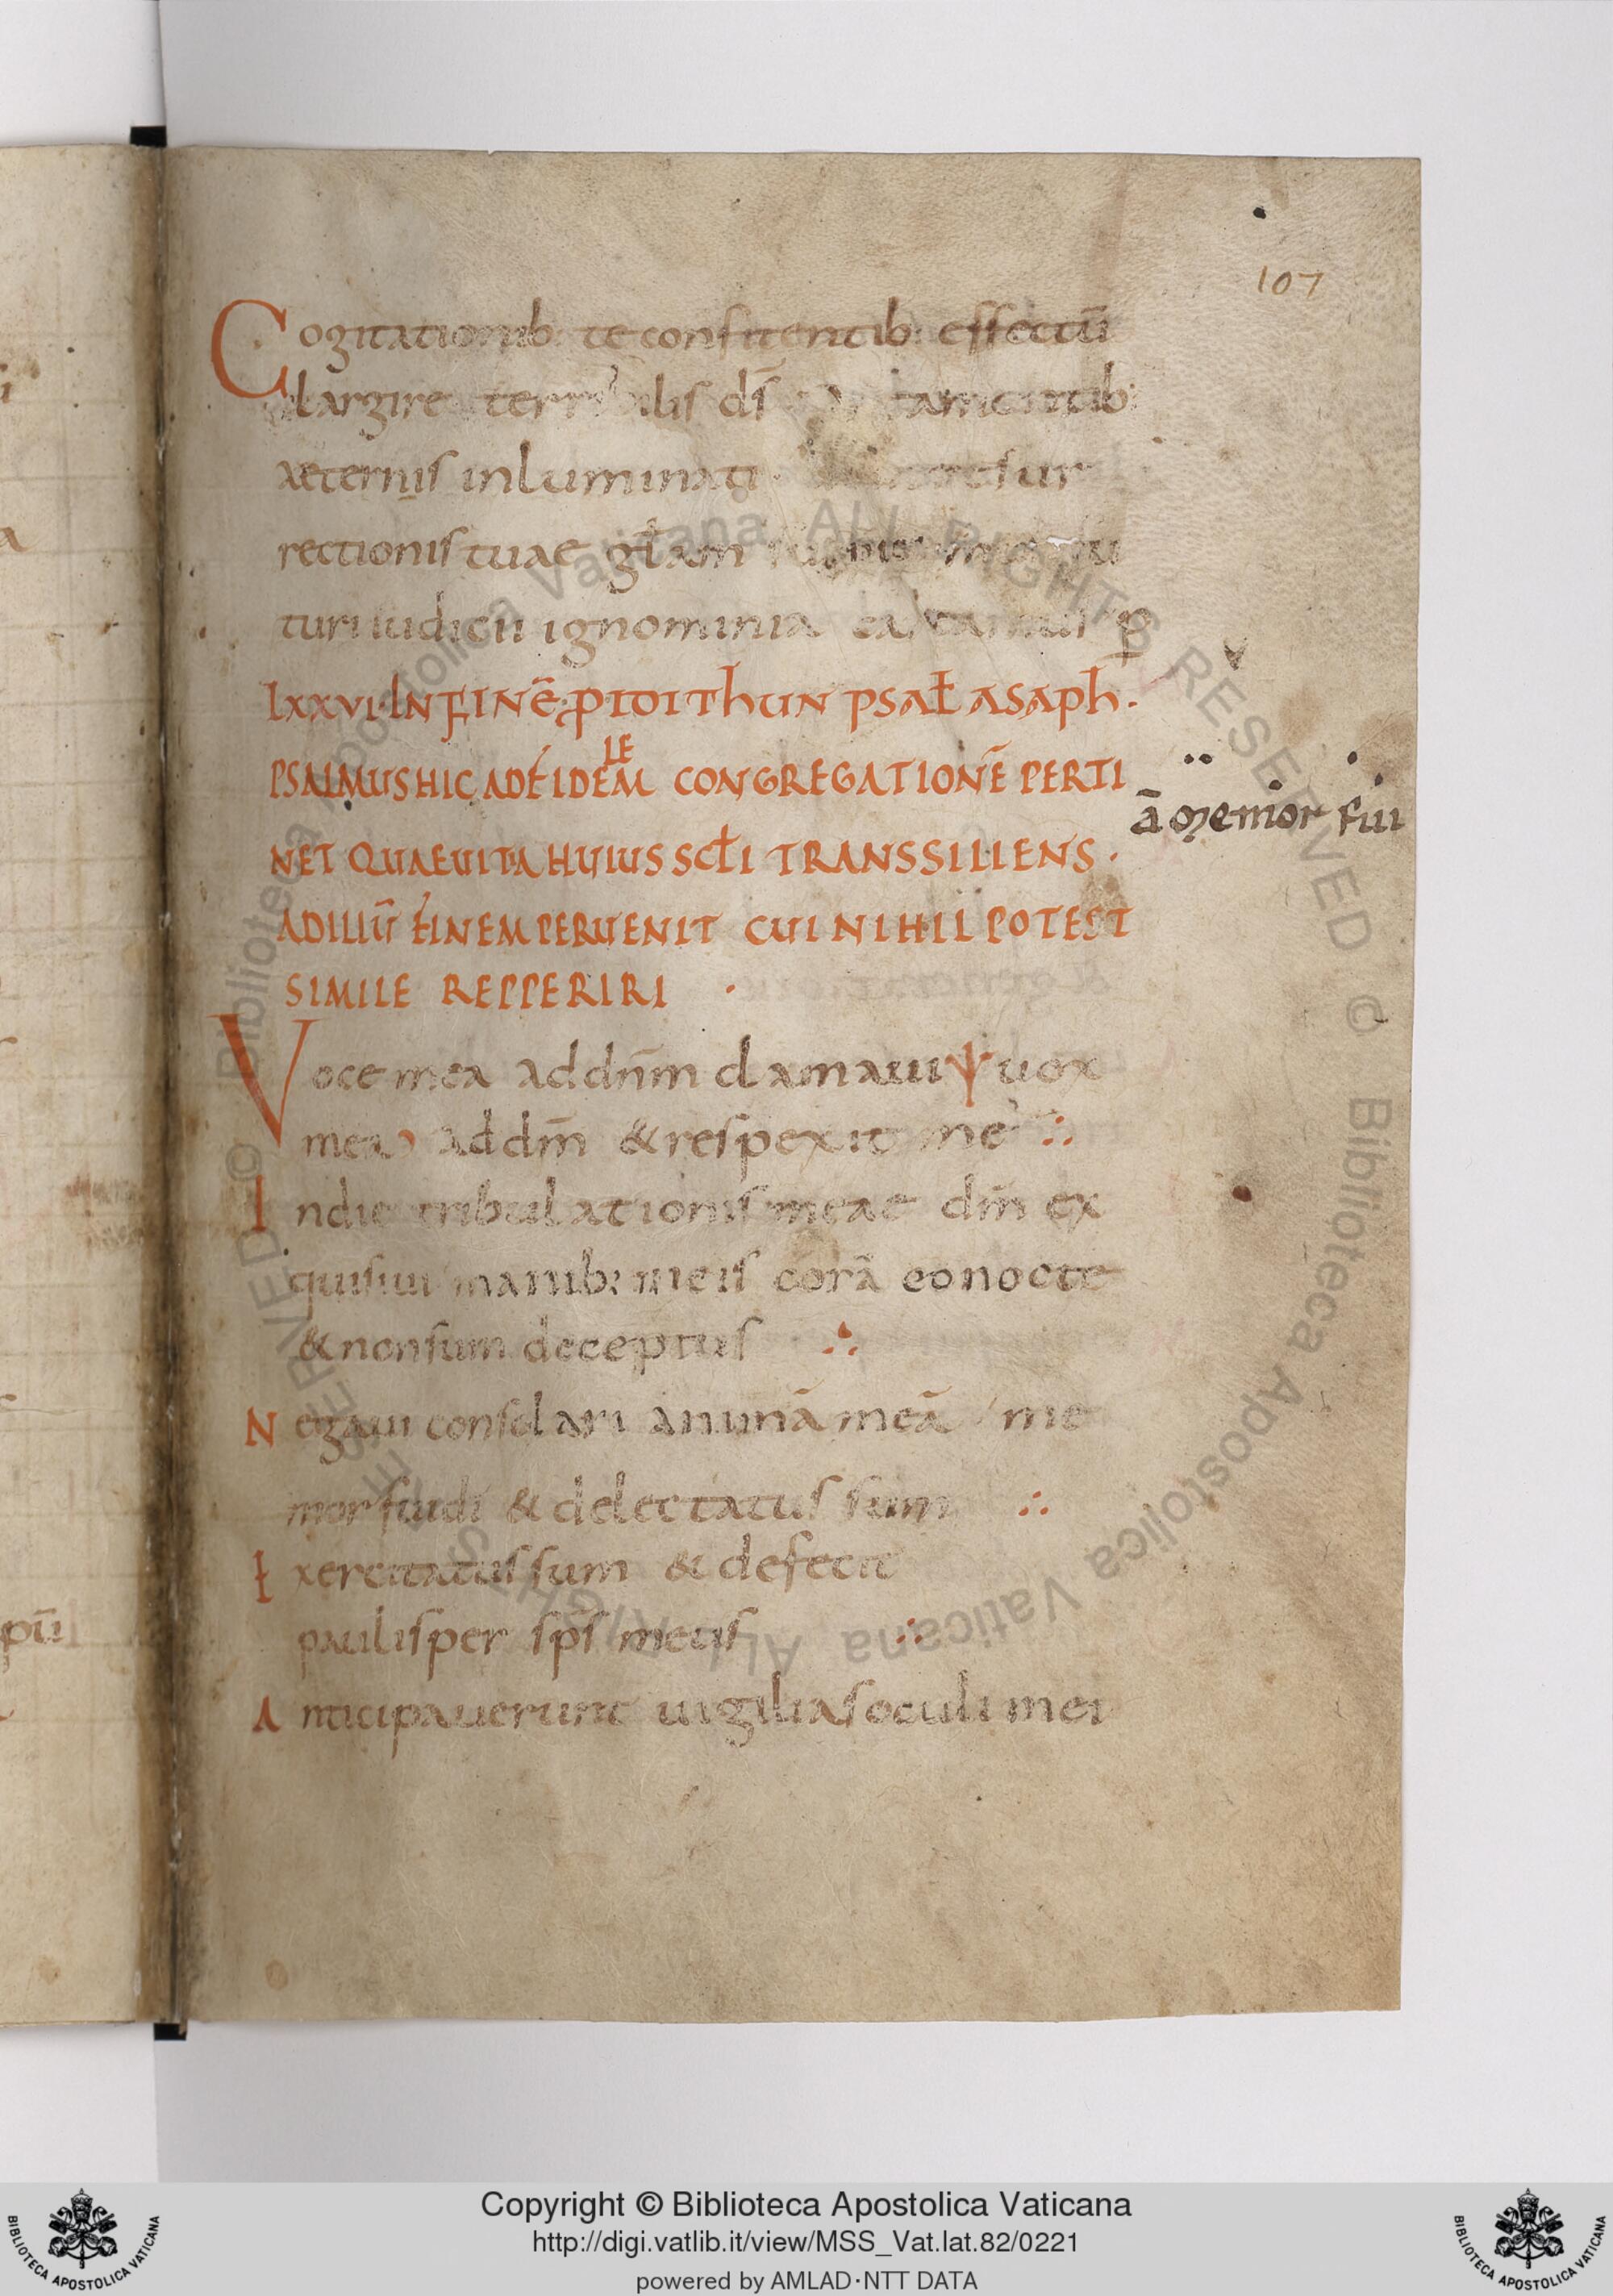 107
Cogitationib: te confitentib: effectū
largire terribilis ds̄
aeternis inluminati resur
rectionis tuae głam
turi iudicii ignominia p̱
Lxxvi· IN FINĒ PIDITHUN PSAł ASAPH·
PSALMUS HIC AD FIDELEM CONGREGATIONĒ PERTI
NET QUAE UITA HUIUS SCŁI TRANSSILIENS·
AD ILLŪ FINEM PERUENIT CUI NIHIL POTEST
SIMILE REPPERIRI ·
ā memor fui
Voce mea ad dn̄m clamaui uox
mea ad dm̄ & respexit me ∴
In die tribulationis meae dm̄ ex
quisiui manib: meis corā eo nocte
& non sum deceptus ∴
Negaui consolari animā meā me
mor fui di & delectatus sum ∴
Exercitatus sum & defecit
paulisper sp̄s meus ∴
Anticipauerunt uigilias oculi mei
pū
© Biblioteca Apostolica Vaticana ALL RIGHTS RESERVED © Biblioteca Apostolica Vaticana ALL RIGHTS RESERVED
BIBLIOTECA APOSTOLICA VATICANA
Copyright © Biblioteca Apostolica Vaticana
http://digi.vatlib.it/view/MSS_Vat.lat.82/0221
powered by AMLAD·NTT DATA
BIBLIOTECA APOSTOLICA VATICANA